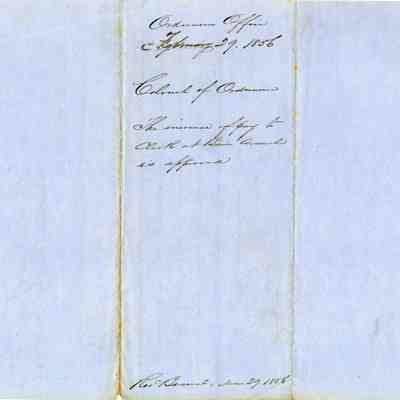 Ordnance Office
February 29, 1856
Colonel of Ordnance
The increase of pay to
Clerk at
is approved
Rec'd 29, 1856